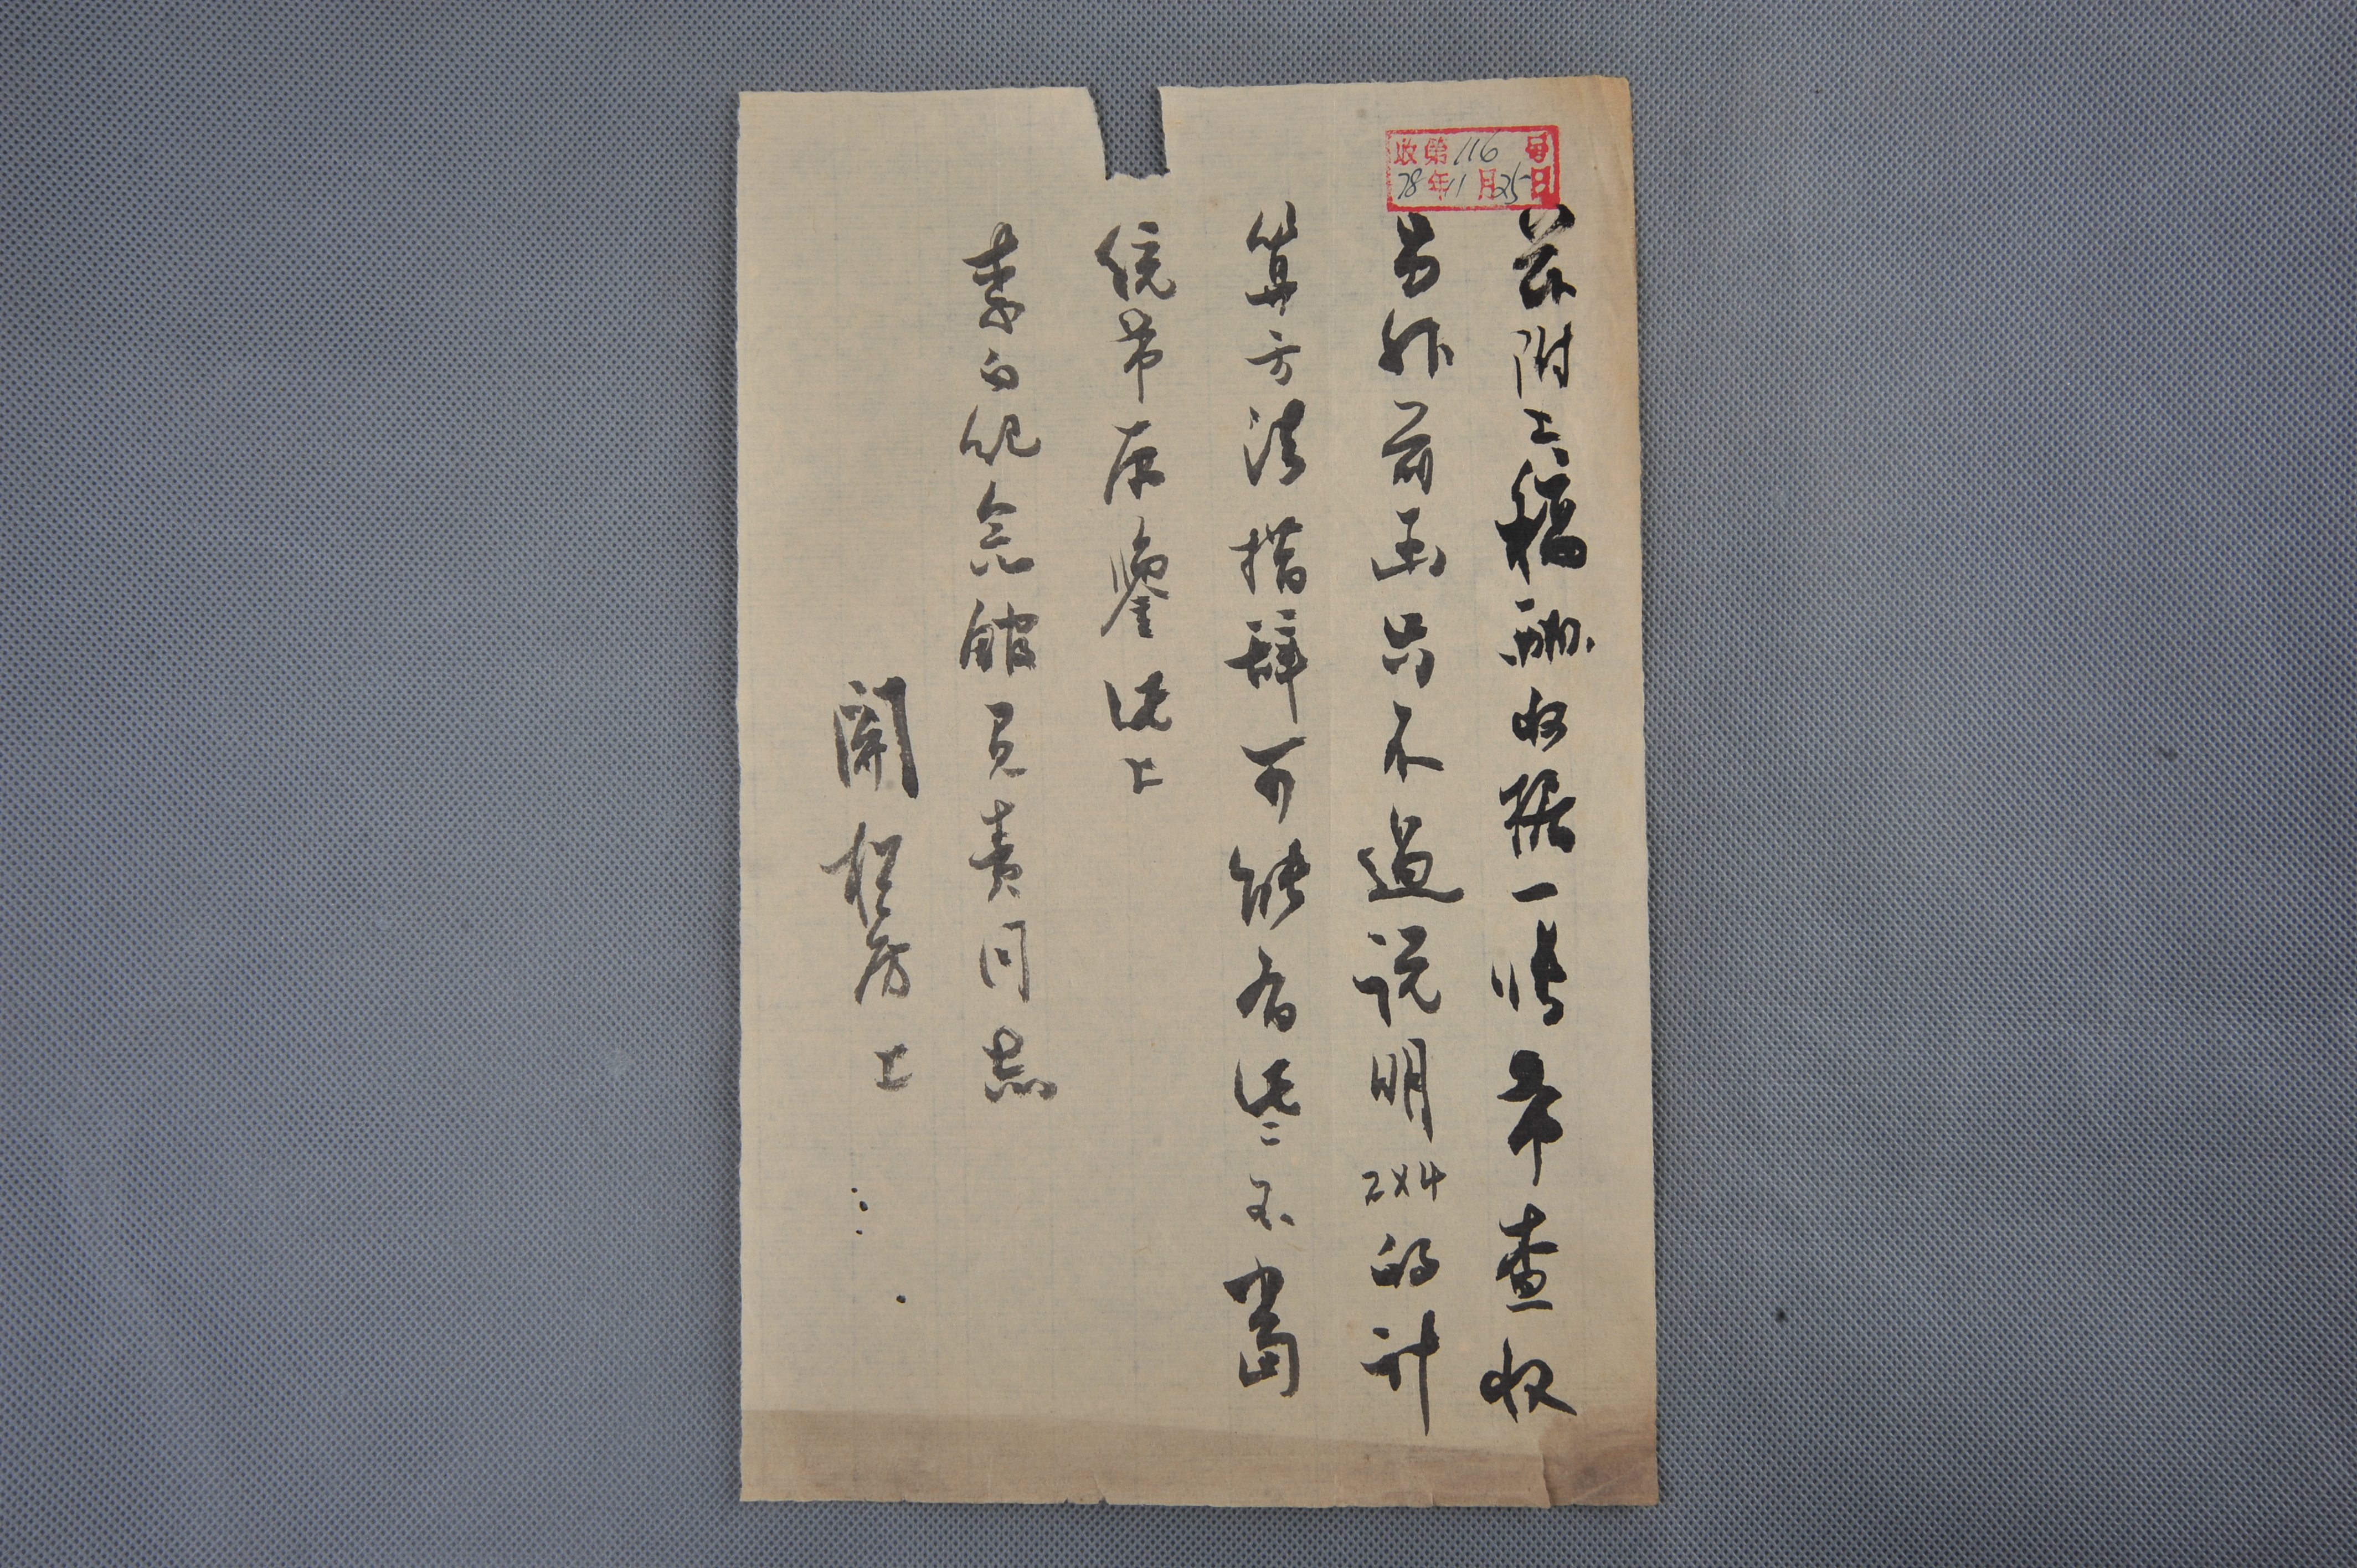 收第116号
78年11月25日
兹附上稿酬收据一帋希查收
另外前函只不过说明2×4的计
算方法措辞可能有些々不当
统希原鉴此上
李白纪念馆负责同志
上